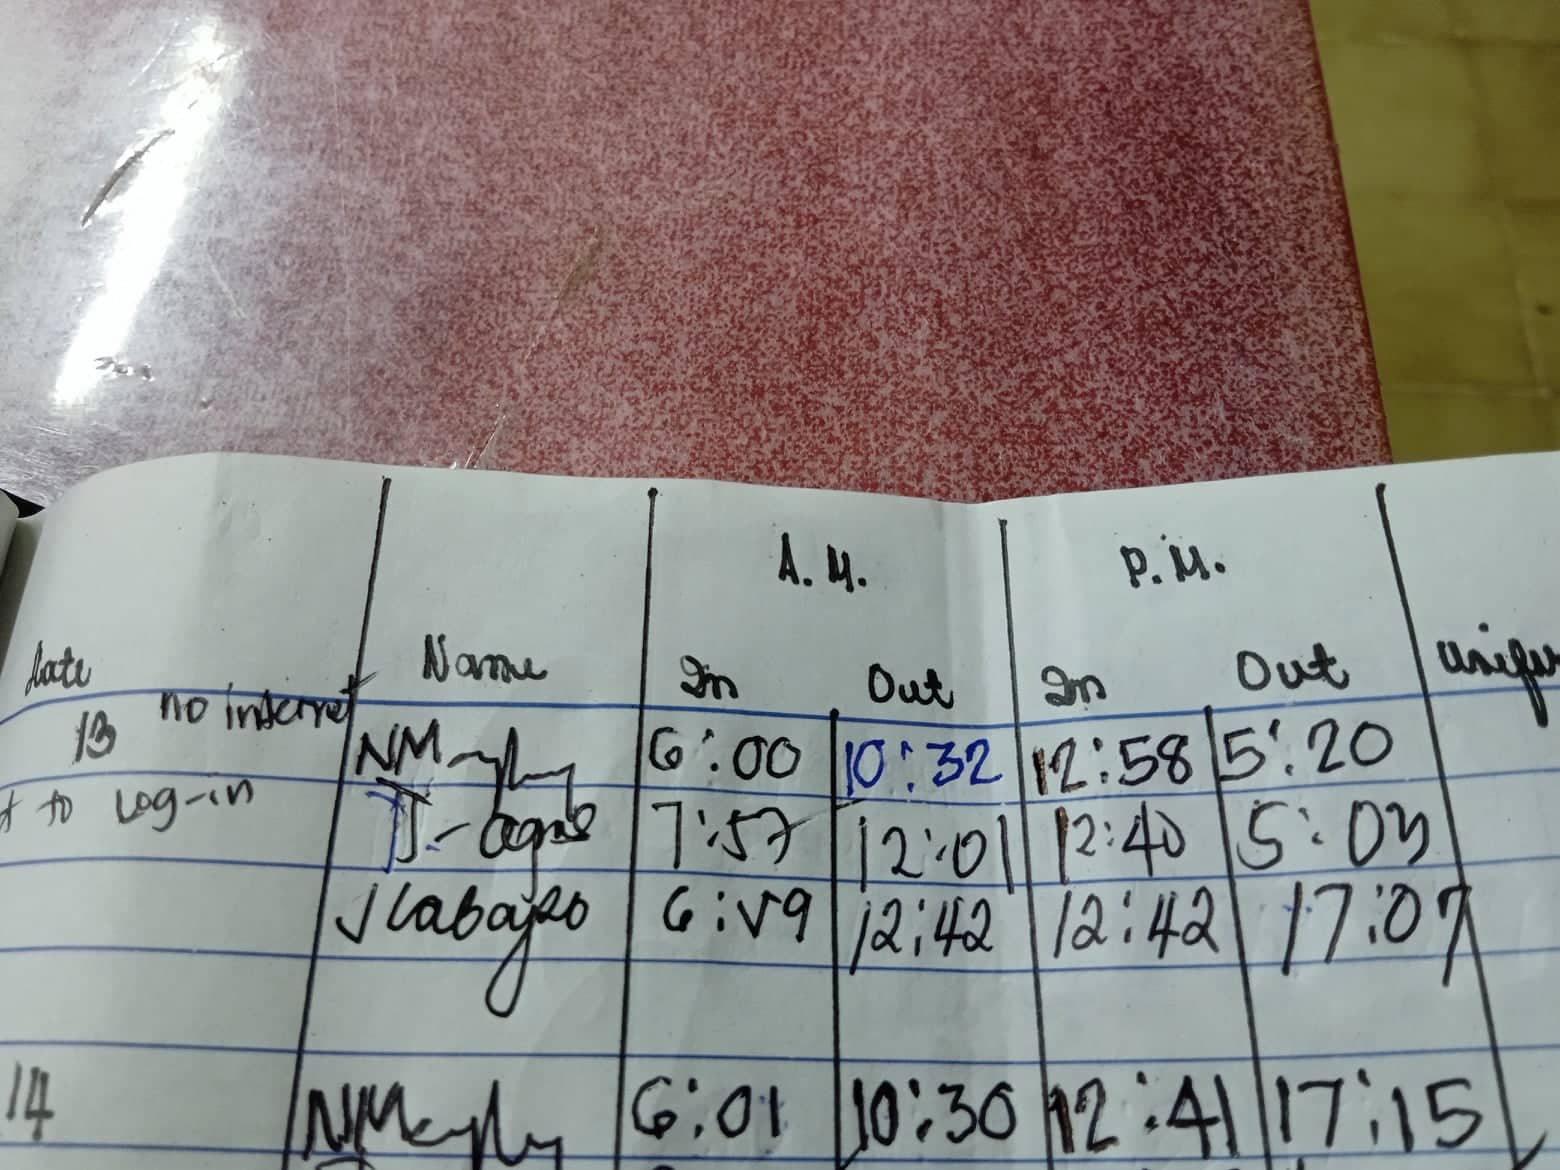 A.M. P.M.
Date Name In Out In Out
13 no internet 6:00 10:32 12:58 5:20
to Log-in J- 7:57 12:01 12:40 5:03
6:59 12:42 12:42 17:07
14 6:01 10:30 12:41 17:15